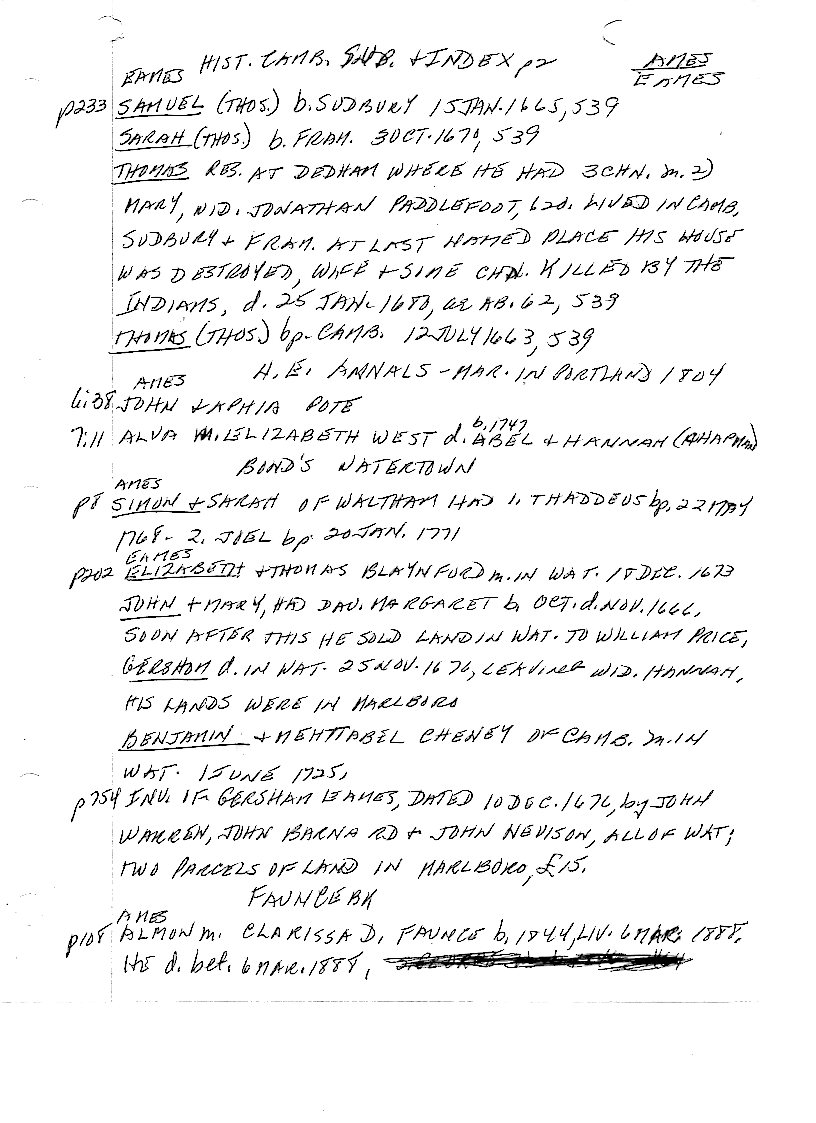 HIST. CAMB. SUP. + INDEX p2
AMES
EAMES
EAMES
p233 SAMUEL (THOS.) b. SUDBURY 15 JAN. 1665, 539
SARAH (THOS.) b. FRAM. 3 OCT. 1670, 539
THOMAS RES. AT DEDHAM WHERE HE HAD 3 CHN. m. 2)
MARY, WID. JONATHAN PADDLEFOOT, 620. LIVED IN CAMB,
SUDBURY + FRAM. AT LAST NAMED PLACE HIS HOUSE
WAS DESTROYED, WIFE + SOME CHN. KILLED BY THE
INDIANS, d. 25 JAN. 1680, ae AB. 62, 539
THOMAS (THOS.) bp. CAMB. 12 JULY 1663, 539
H.E. ANNALS - MAR. IN PORTLAND 1804
AMES
6:38 JOHN + APHIA POTE
7:11 ALVA m. ELIZABETH WEST d. ABEL b. 1747 + HANNAH (CHAPMAN)
BOND'S WATERTOWN
AMES
p8 SIMON + SARAH OF WALTHAM HAD 1. THADDEUS bp. 22 MAY
1768 - 2. JOEL bp. 20 JAN. 1771
EAMES
p202 ELIZABETH + THOMAS BLAYNFORD m. IN WAT. 18 DEC. 1673
JOHN + MARY, HAD DAU. MARGARET b. OCT. d. NOV. 1666,
SOON AFTER THIS HE SOLD LAND IN WAT. TO WILLIAM PRICE,
GERSHOM d. IN WAT. 25 NOV. 1676, LEAVING WID. HANNAH,
HIS LANDS WERE IN MARLBORO
BENJAMIN + MEHITABEL CHENEY OF CAMB. m. IN
WAT. 1 JUNE 1725,
p754 INV. OF GERSHAM EAMES, DATED 10 DEC. 1676, by JOHN
WARREN, JOHN BARNARD + JOHN NEVISON, ALL OF WAT;
TWO PARCELS OF LAND IN MARLBORO, £15.
FAUNCE BK
AMES
p108 ALMON m. CLARISSA D. FAUNCE b. 1844, LIV. 6 MAR. 1888.
HE d. bef. 6 MAR. 1888,